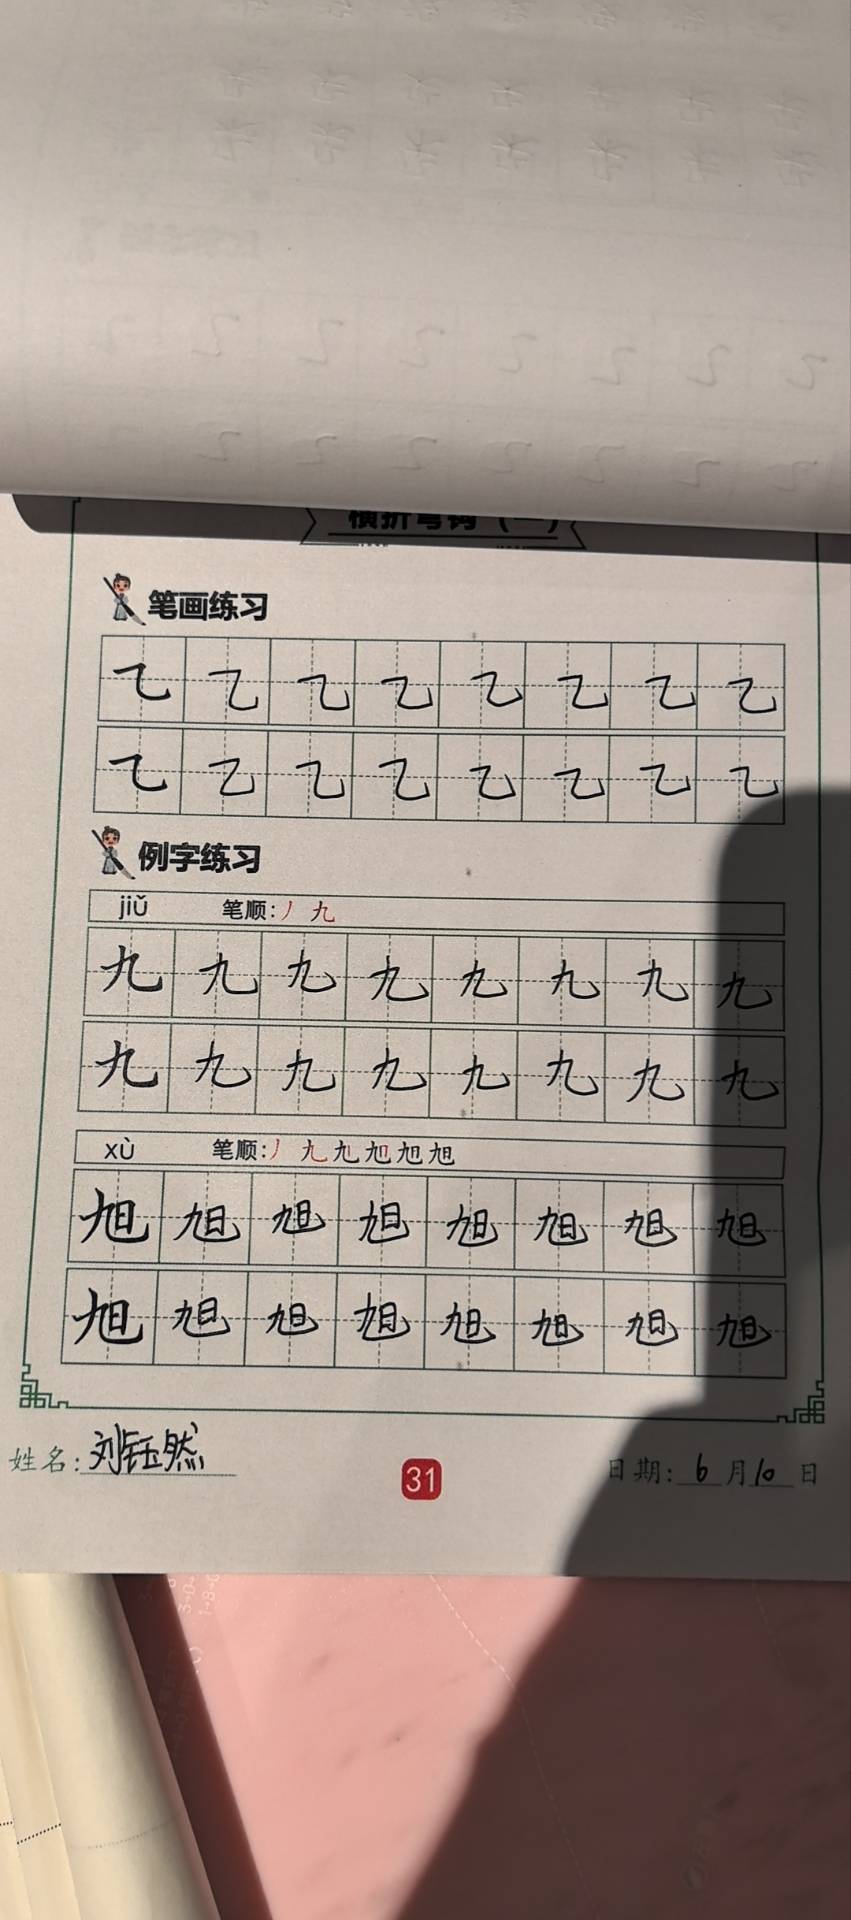 横折弯钩（一）
笔画练习
乙乙乙乙乙乙乙乙
乙乙乙乙乙乙乙乙
例字练习
jiǔ 笔顺:丿九
九九九九九九九九
九九九九九九九九
xù 笔顺:丿九九旭旭旭
旭旭旭旭旭旭旭旭
旭旭旭旭旭旭旭旭
姓名:刘钰然 31 日期:6月10日